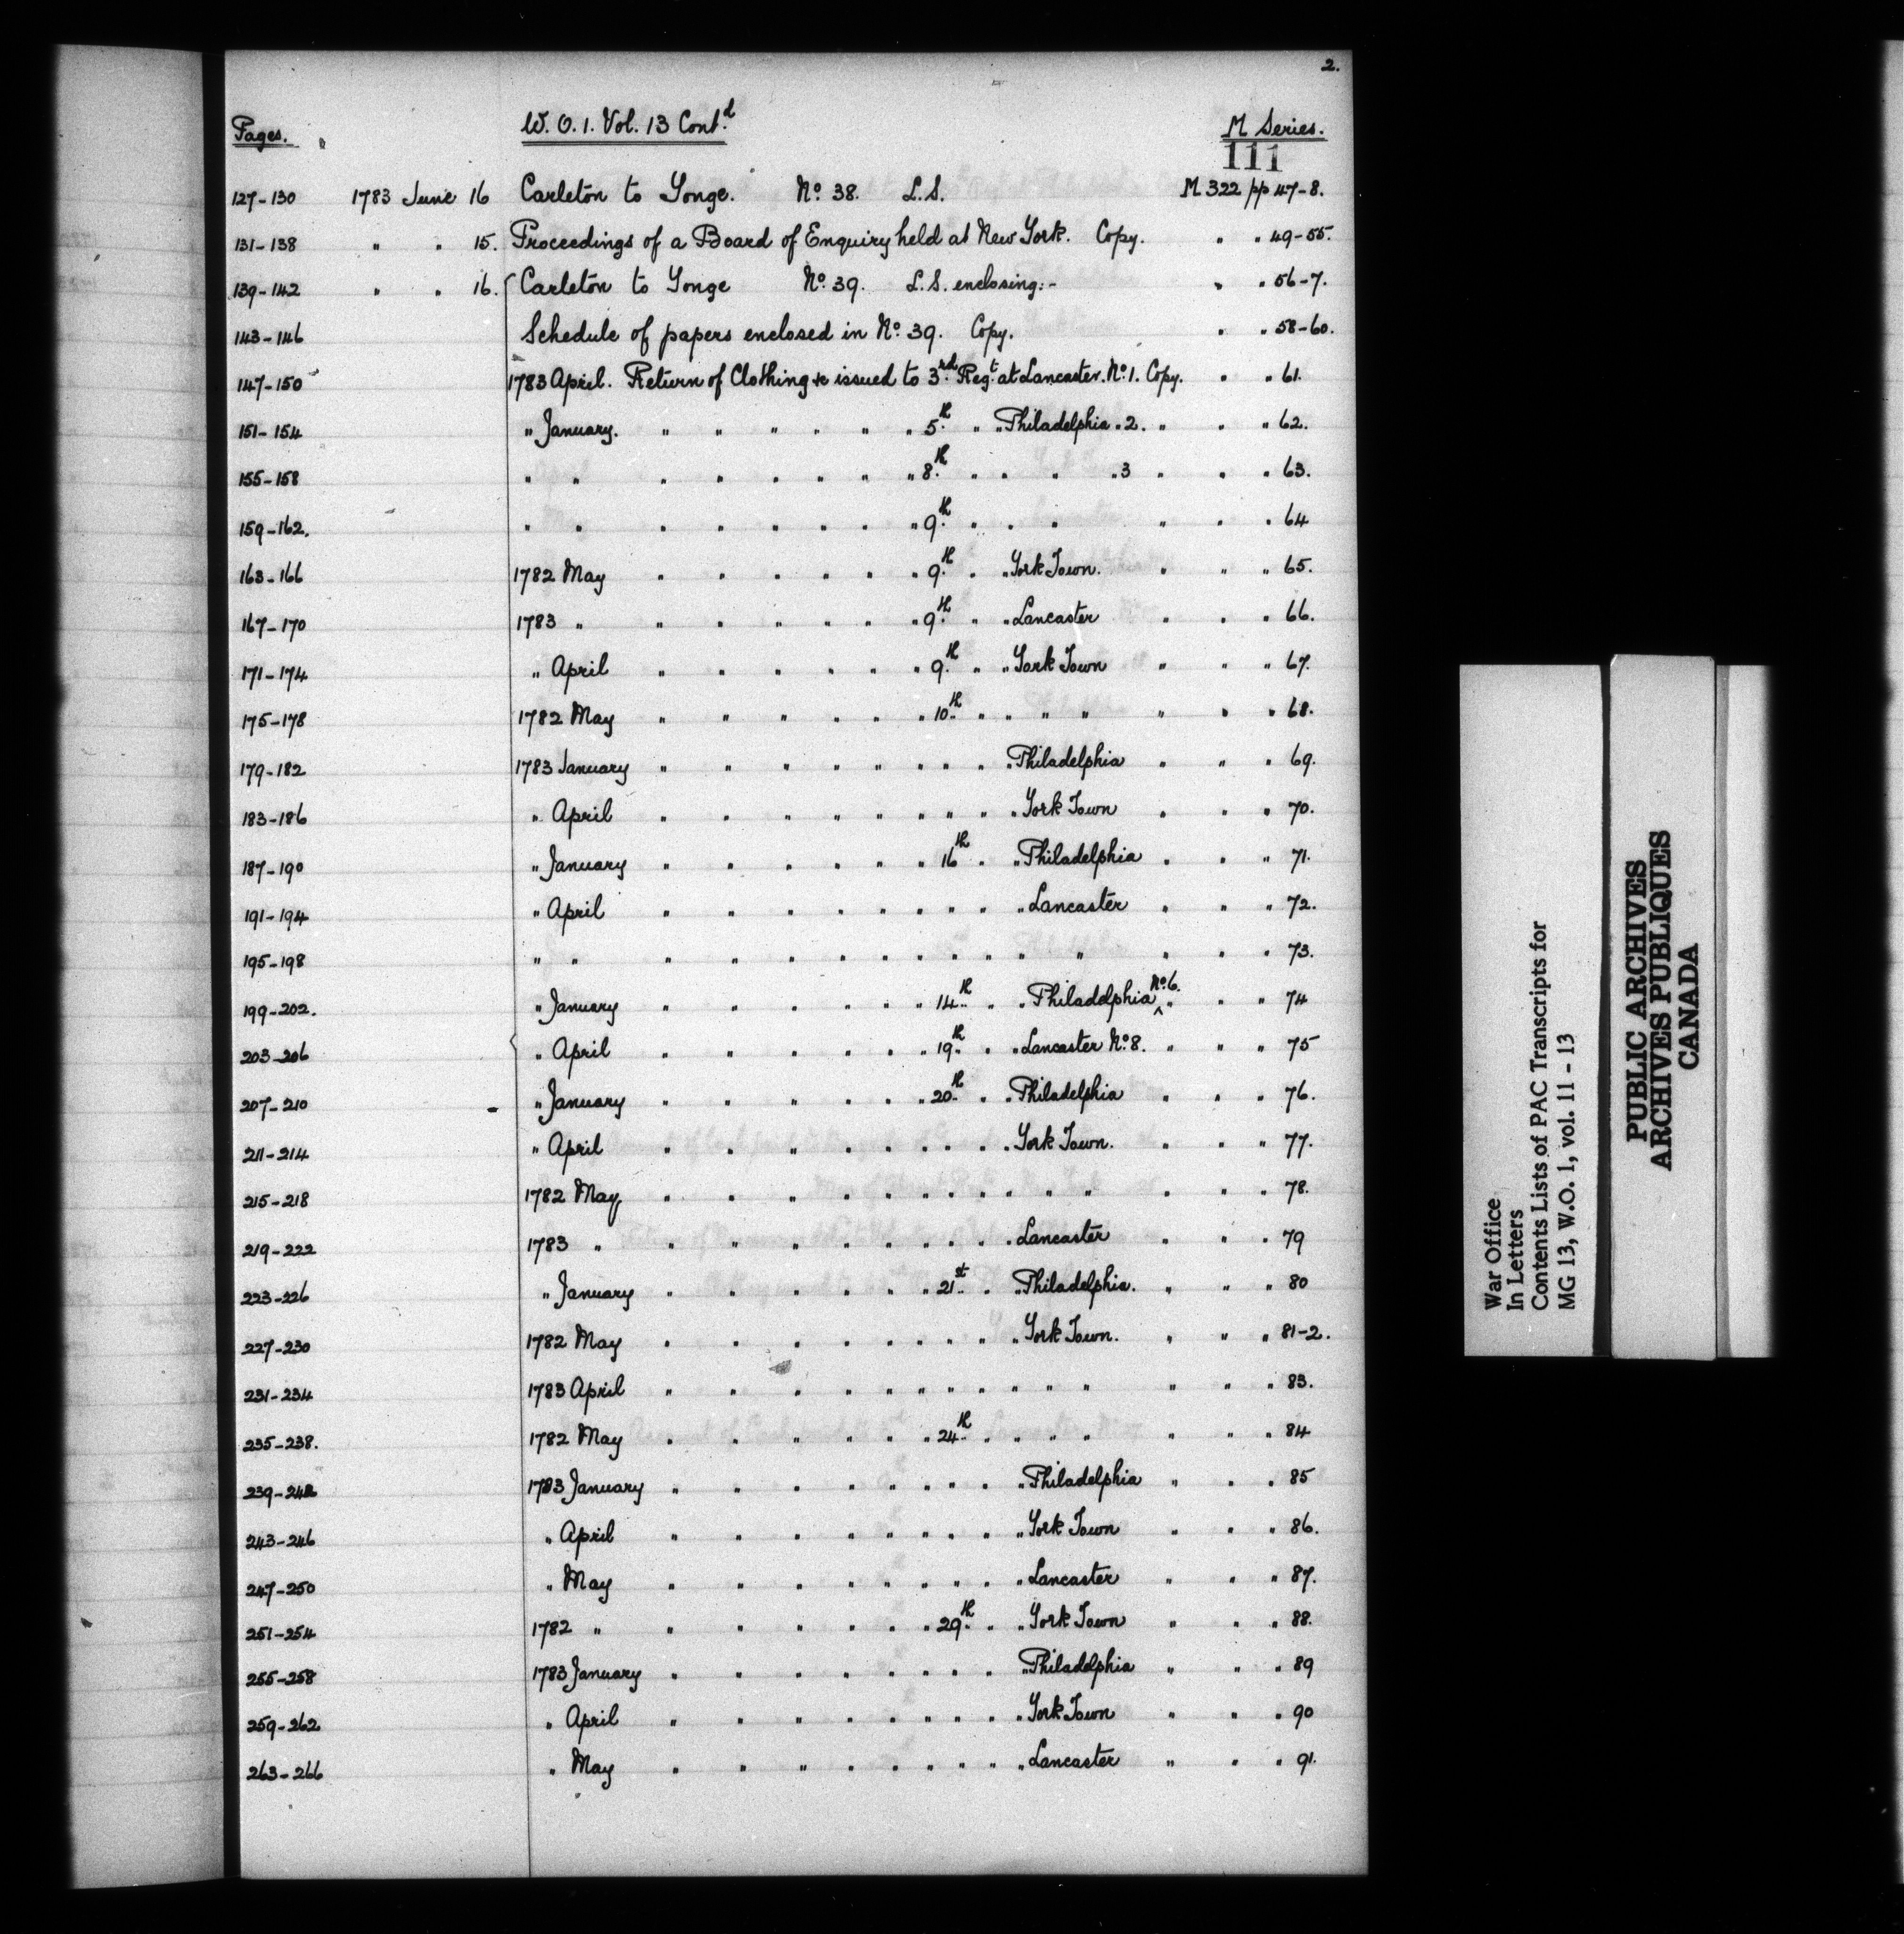 2.
Pages. W. O. 1. Vol. 13 Contd. M Series.
111
127-130 1783 June 16 Carleton to Yonge. No. 38. L.S. M 322 pp 47-8.
131-138 " " 15. Proceedings of a Board of Enquiry held at New York. Copy. " " 49-55.
139-142 " " 16. Carleton to Yonge No. 39. L.S. enclosing:- " " 56-7.
143-146 Schedule of papers enclosed in No. 39. Copy. " " 58-60.
147-150 1783 April. Return of Clothing &c issued to 3rd. Regt. at Lancaster. No. 1. Copy. " " 61.
151-154 " January. " " " " " " 5th. " " Philadelphia " 2. " " " 62.
155-158 " " " " " " " " 8th. " " " " 3 " " " 63.
159-162. " " " " " " " " 9th. " " " " " " 64
163-166 1782 May " " " " " " 9th. " " York Town. " " " 65.
167-170 1783 " " " " " " " 9th. " " Lancaster " " " 66.
171-174 " April " " " " " " 9th. " " York Town " " " 67.
175-178 1782 May " " " " " " 10th. " " " " " " " 68.
179-182 1783 January " " " " " " " " " Philadelphia " " " 69.
183-186 " April " " " " " " " " " York Town " " " 70.
187-190 " January " " " " " " 16th " " Philadelphia " " " 71.
191-194 " April " " " " " " " " " Lancaster " " " 72.
195-198 " " " " " " " " " " " " " " " 73.
199-202. " January " " " " " " 14th. " " Philadelphia No. 6. " " " 74
203-206 " April " " " " " " 19th. " " Lancaster No. 8. " " " 75
207-210 " January " " " " " " 20th. " " Philadelphia " " " 76.
211-214 " April " " " " " " " " " York Town. " " " 77.
215-218 1782 May " " " " " " " " " " " " " " 78.
219-222 1783 " " " " " " " " " " Lancaster " " " 79
223-226 " January " " " " " " 21st. " " Philadelphia. " " " 80
227-230 1782 May " " " " " " " " " York Town. " " " 81-2.
231-234 1783 April " " " " " " " " " " " " " " 83.
235-238. 1782 May " " " " " " 24th. " " " " " " " 84
239-242 1783 January " " " " " " " " " Philadelphia " " " 85
243-246 " April " " " " " " " " " York Town " " " 86.
247-250 " May " " " " " " " " " Lancaster " " " 87.
251-254 1782 " " " " " " " 29th. " " York Town " " " 88.
255-258 1783 January " " " " " " " " " Philadelphia " " " 89
259-262 " April " " " " " " " " " York Town " " " 90
263-266 " May " " " " " " " " " Lancaster " " " 91.
War Office
In Letters
Contents Lists of PAC Transcripts for
MG 13, W.O. 1, vol. 11 - 13
PUBLIC ARCHIVES
ARCHIVES PUBLIQUES
CANADA